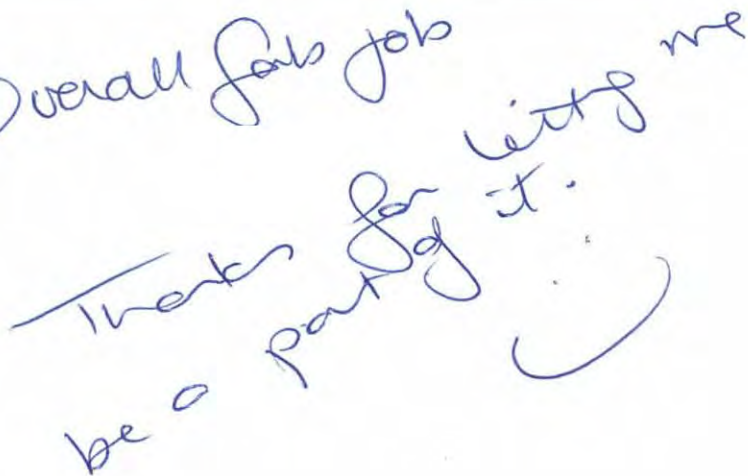 Overall fab job
Thanks for letting me
be a part of it.